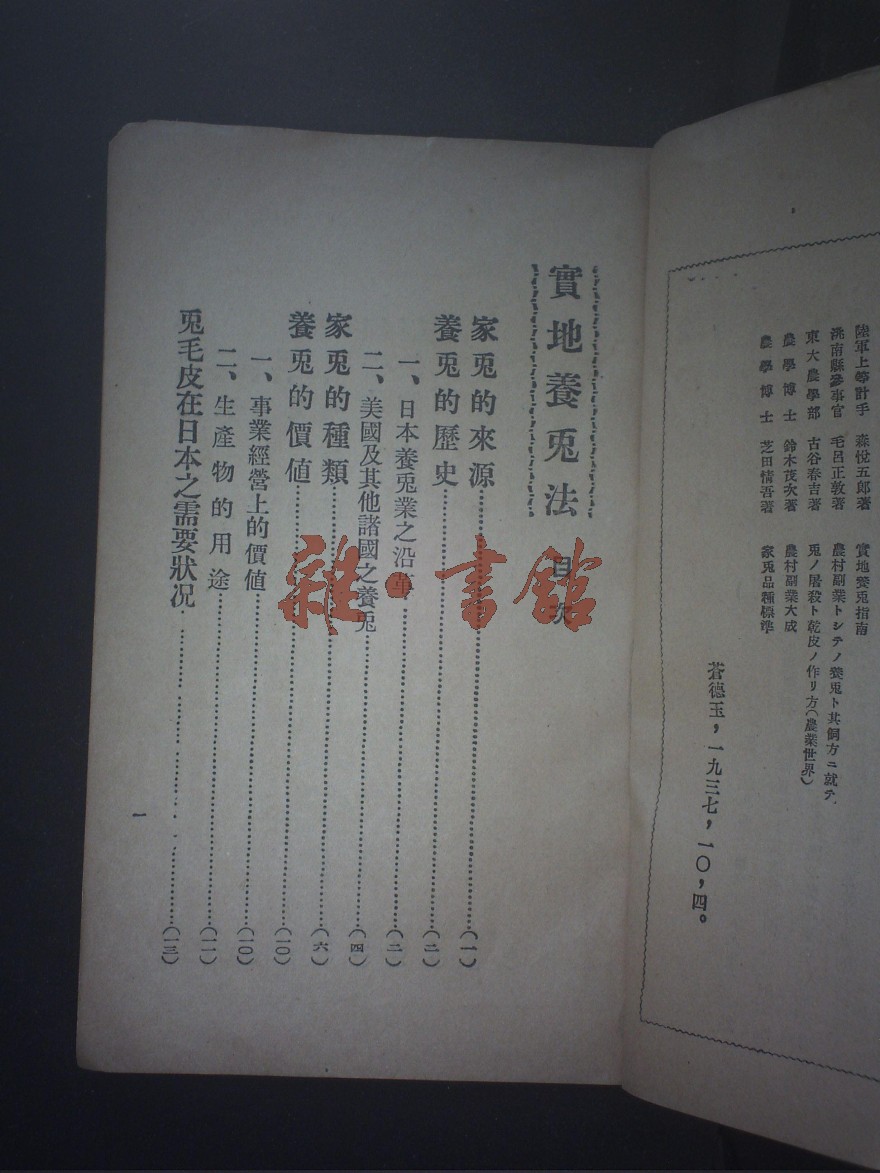 陸軍上等計手　森悅五郎著　實地養兎指南
洮南縣參事官　毛呂正敦著　農村副業トシテノ養兎ト其飼方ニ就テ
東大農學部　古谷春吉著　兎ノ屠殺ト乾皮ノ作リ方（農業世界）
農學博士　鈴木茂次著　農村副業大成
農學博士　芝田清吾著　家兎品種標準
蒼德玉，一九三七，一〇，四。
實地養兎法　目次
家兎的來源……（一）
養兎的歷史……（二）
一、日本養兎業之沿革……（二）
二、美國及其他諸國之養兎……（四）
家兎的種類……（六）
養兎的價値……（一〇）
一、事業經營上的價値……（一〇）
二、生產物的用途……（一一）
兎毛皮在日本之需要狀況……（一三）
一
雜·書館